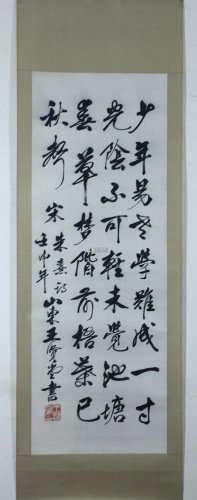 少年易老學難成一寸
光陰不可輕未覺池塘
春草夢階前梧葉已
秋聲 宋 朱熹詩
壬申年 山東王 書